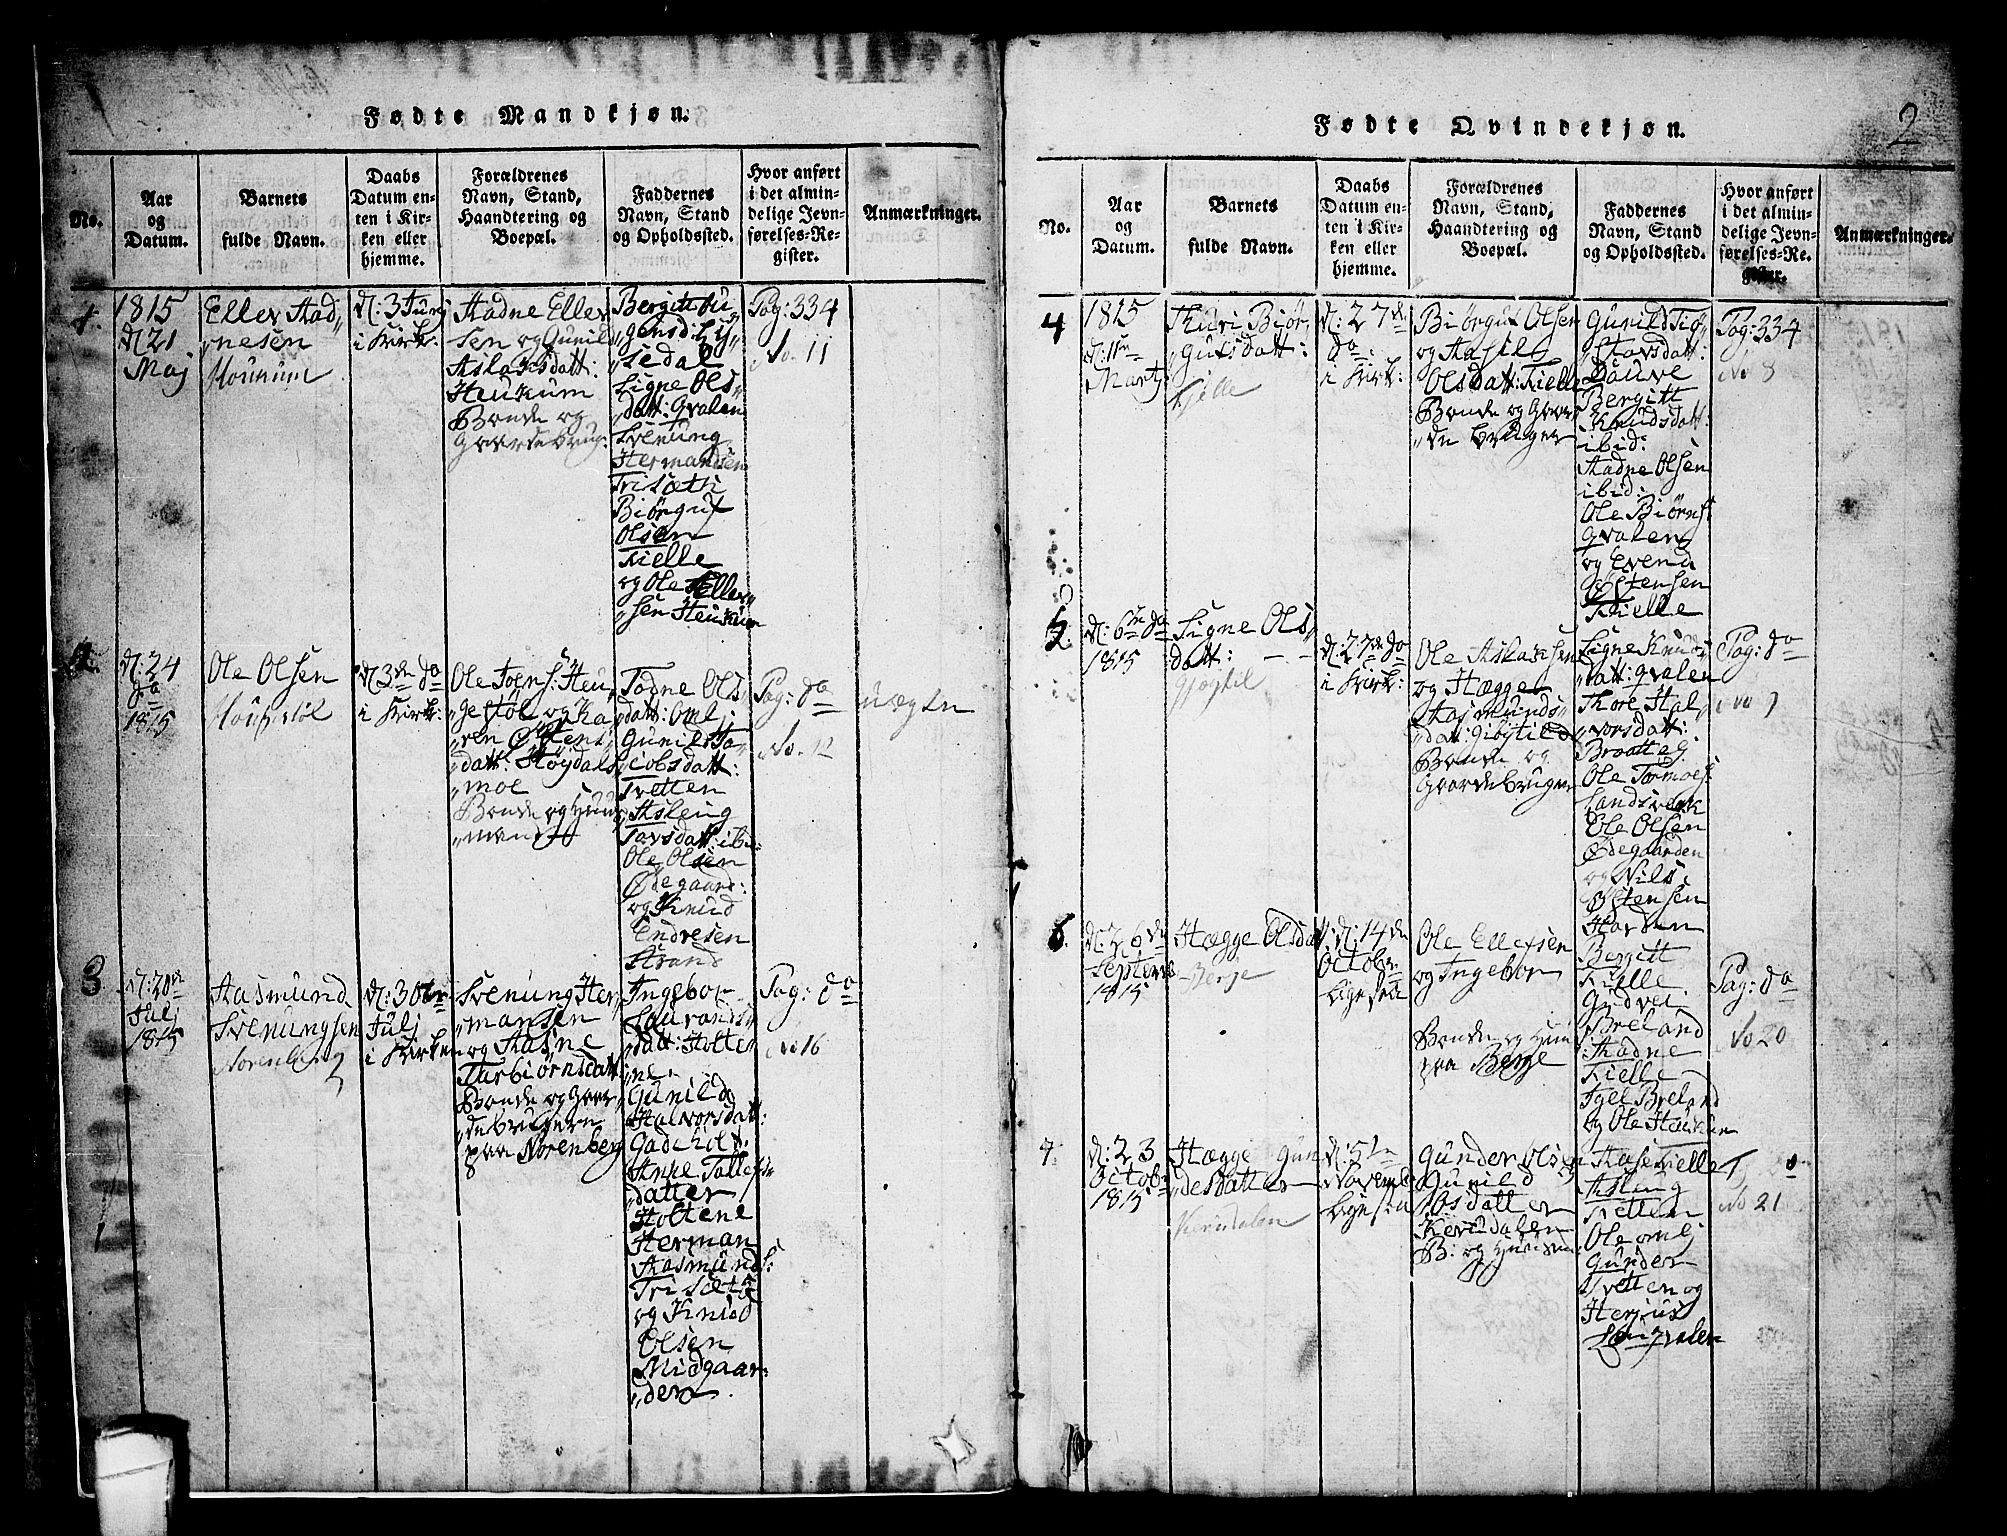 Fødte Mandkjøn.
No.
Aar
og
Datum.
Barnets
fulde Navn.
Daabs
Datum en-
ten i Kir-
ken eller
hjemme.
Forældrenes
Navn, Stand,
Haandtering og
Boepæl.
Faddernes
Navn, Stand
og Opholdssted.
Hvor anført
i det almin-
delige Jevn-
førelses-Re-
gister.
Anmærkninger.
1.
1815
d: 21
Maj
Ellev Aad„
„nesen
d: 3 Junj
i Kirk:
Aadne Ellev
sen og Gunild
Aslaksdatt:
Heukum
Bonde og
Gaardebrug:
Ligne Ols„
datt: Qvalen
Svenung
Hermandsen
Trisæth
Biørguf
Olsen
Kielle
og Ole Ellev„
„sen Heukum
Pag: 334
No. 11
2.
d: 24
do
1815
Ole Olsen
d 3de do
i Kirk:
Ole Joens: Heu„
gestøl og Ka„
„ren Østens„
„datt: Høydals„
„moe
Bonde og Huus„
„mand
Tadne Ols„
datt: Omlj
Gunild Ja„
„cobsdatt:
Tvetten
Aslaug
Tovsdatt: ibi:
Ole Olsen
Ødegaard:
og Knud
Endresen
Strand
Pag: do
No. 12
uægte
3
d: 20de
Julj
1815
Aasmund
Svenungsen
Norenberg
d: 30te
Julj
i Kirken
Svenung Her„
„mansen
og Aasne
Tarbiørnsdatt
Bonde og Gaar„
„debrugere
paa Norenberg
Ingebor
Lavrands„
„datt: Holte„
„ne.
Gunild
Halvorsdatt:
Gadeholt.
Anne Tallefs„
„datter
Holtene
Herman
Aasmunds:
Trisæt
og Knud
Olsen
Midgaar„
„den.
Pag: do
No 16
2
Fødte Qvindekjøn.
No.
Aar
og
Datum.
Barnets
fulde Navn.
Daabs
Datum en-
ten i Kir-
ken eller
hjemme.
Forældrenes
Navn, Stand,
Haandtering og
Boepæl.
Faddernes
Navn, Stand
og Opholdssted.
Hvor anført
i det almin-
delige Jevn-
førelses-Re-
gister.
Anmærkninger.
4
1815
Martj
Thuri Biør„
„gufsdatt:
Kjelle
d: 27de
do
i Kirk:
Biørguf Olsen
og Aasil
Olsdatt: Kielle
Bonde og Gaar
„de bruger
Gunild
Stavsdatt:
Dauve
Bergitt
Knudsdatt:
ibid:
Aadne Olsen
ibid:
Ole Biørns:
Qvalen
og Evend
Østensen
Kielle
Pag: 334
No 8
5.
d: 6te do
1815
Signe Ols„
datt:
d: 27de do
i Kirk:
Ole Aslaksen
og Hægge
Aasmunds„
„datt: Giøytil
Bonde og
Gaardebruger
Signe Knuds„
„datt: Qvalen
Thore Hal„
„vorsdatt:
Braatteg.
Ole Tormoes:
Landsverk
Ole Olsen
Ødegaarden
og Nils
Østensen
Haaden
Pag: do
6.
d: 26de
Septem
1815
Hægge Olsda
Berje
d: 14de
Octobr
Ole Ellefsen
og Ingebor
Bonde og Huu
paa Berje
Bergitt
Kielle
Gudvei
Breland
Aadne
Kielle
Breland
og Ole
Pag: do
No 20
7.
d: 23
Octobr
1815
Hægge Gun
„desdatter
d: 5te
Novemb
Gunder Olsen
Gunild
Olsdatter
Kerudalen
B: og Huusm:
Aase Kielle
Aslaug
Ketten
Ole Omlj
Gunder
Tvetten og
Herjus
No 21